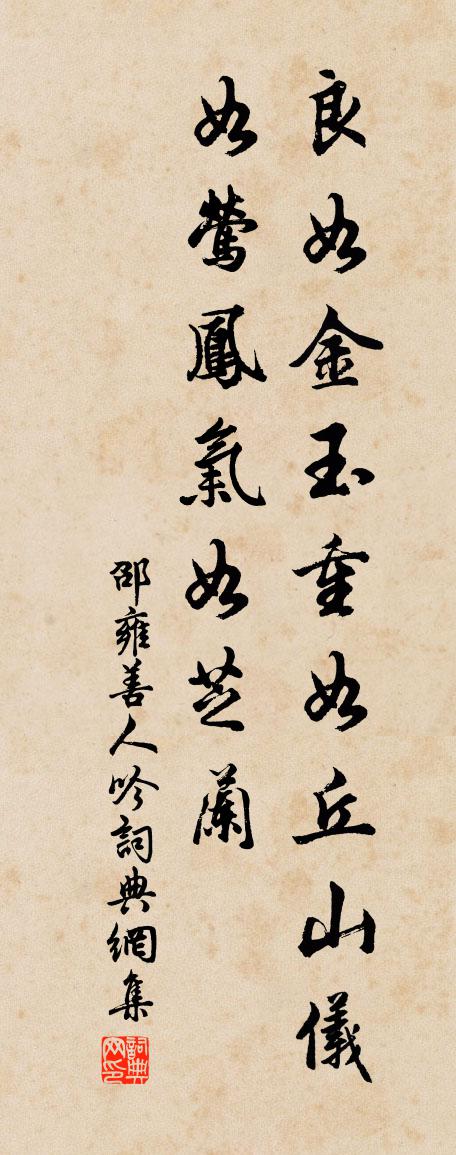 良如金玉重如丘山儀
如鶯鳳氣如芝蘭
邵雍善人吟詞典網集
詞典网印